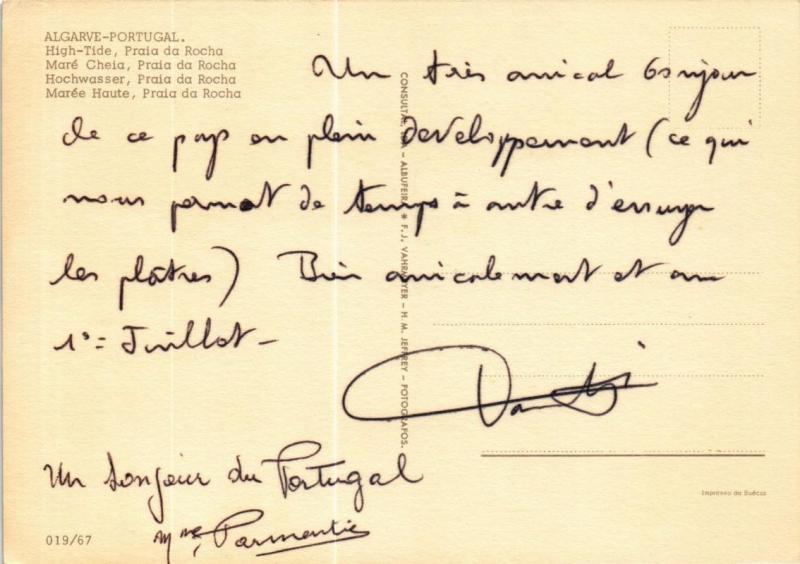 ALGARVE-PORTUGAL.
High-Tide, Praia da Rocha
Maré Cheia, Praia da Rocha
Hochwasser, Praia da Rocha
Marée Haute, Praia da Rocha
Un très amical bonjour
de ce pays en plein developpement (ce qui
nous permet de temps à autre d'essuyer
les plâtres) Bien amicalement et au
1er Juillet -
Un bonjour du Portugal
Mme Parmentier
CONSULTAL, LDA - ALBUFEIRA * F. J. VAHRMEYER - H. M. JEFFREY - FOTOGRAFOS.
Impresso da Suécia
019/67